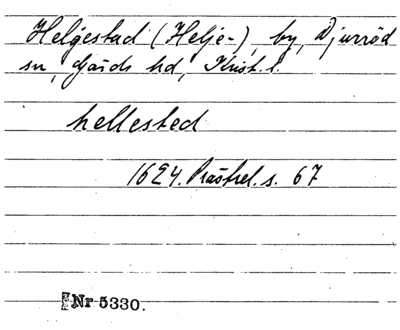 Helgestad (Helje-), by, Djurröd
sn, Gärds hd, Krist. l.
hellested
1624. Prästrel. s. 67
Nr 5330.